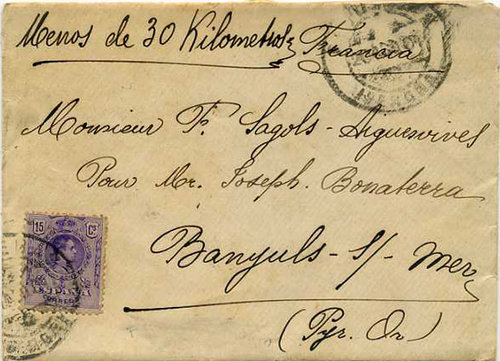 Menos de 30 Kilometros Francia
Monsieur F. Sagols-Aiguesvives
Pour Mr. Joseph. Bonaterra
Banyuls-s/-mer
(Pyr. Or)
15 Cs.
ESPAÑA
CORREOS